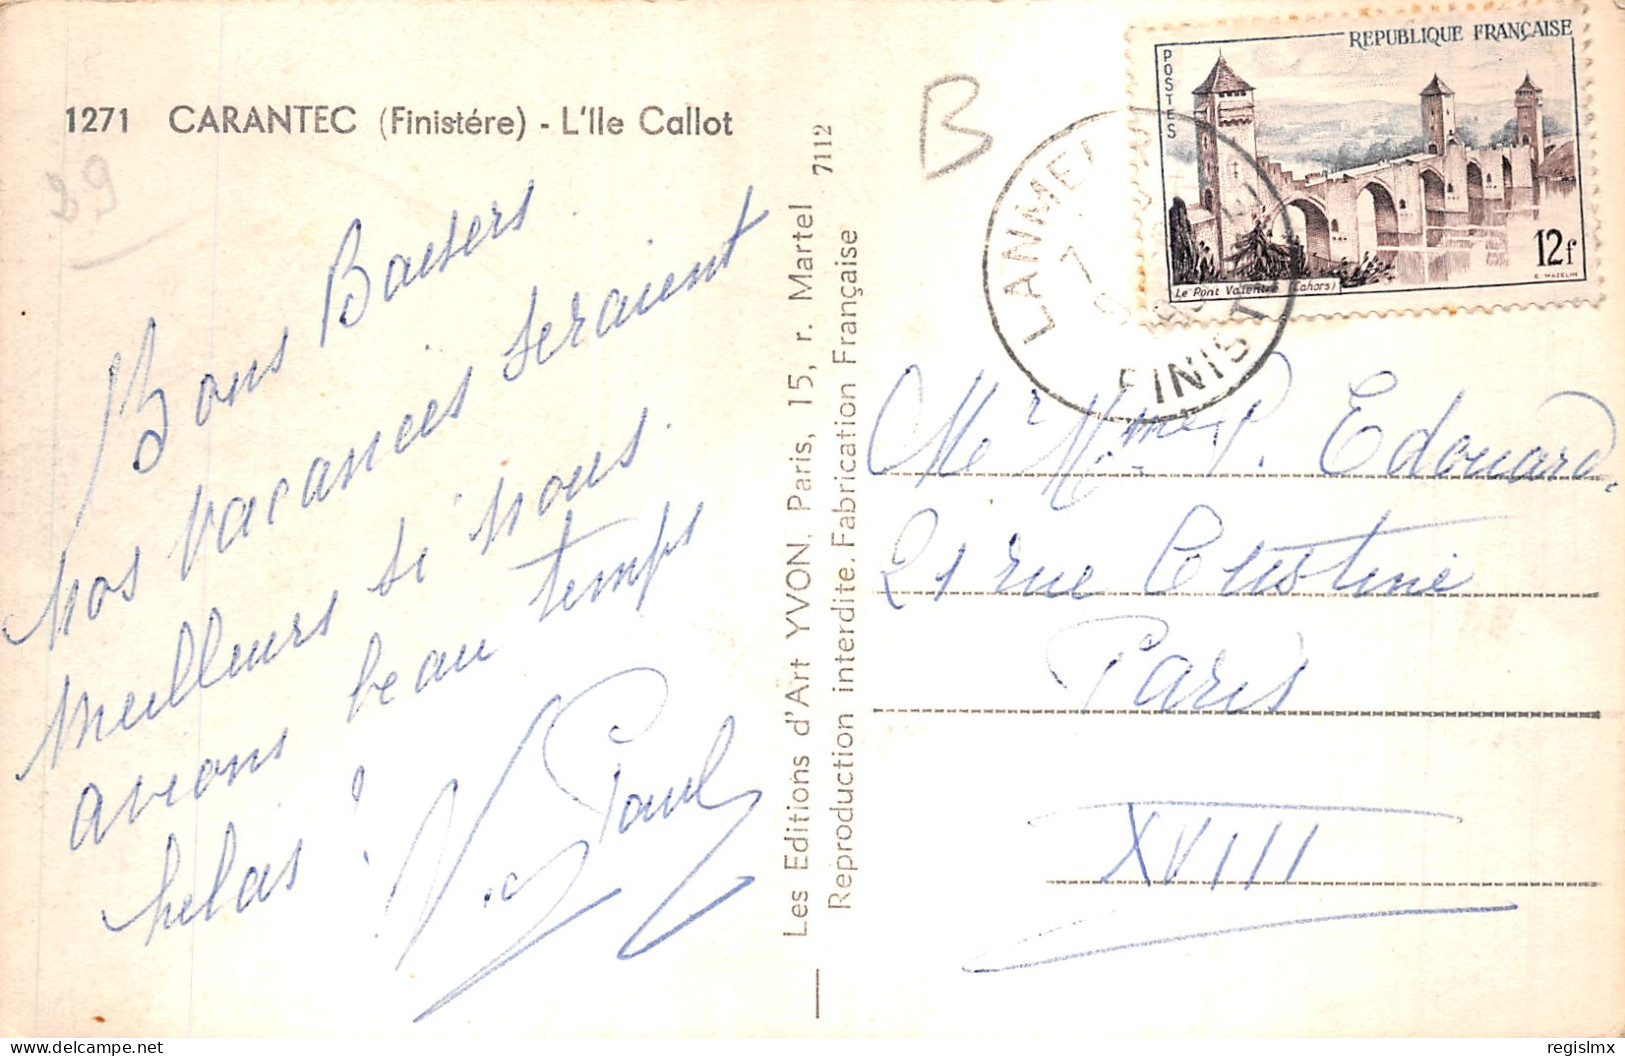 1271 CARANTEC (Finistére) - L'Ile Callot
89
Bons Baisers
Nos vacances seraient
meilleurs si nous
avions beau temps
helas !
Paul
Les Editions d'Art YVON, Paris, 15, r. Martel 7112
Reproduction interdite. Fabrication Française
B
REPUBLIQUE FRANÇAISE
POSTES
12f
Le Pont Valentré (Cahors)
C. MAZELIN
LANME
FINIST
Mr Mme P. Edouard
21 rue
Paris
XVIII
regislmx